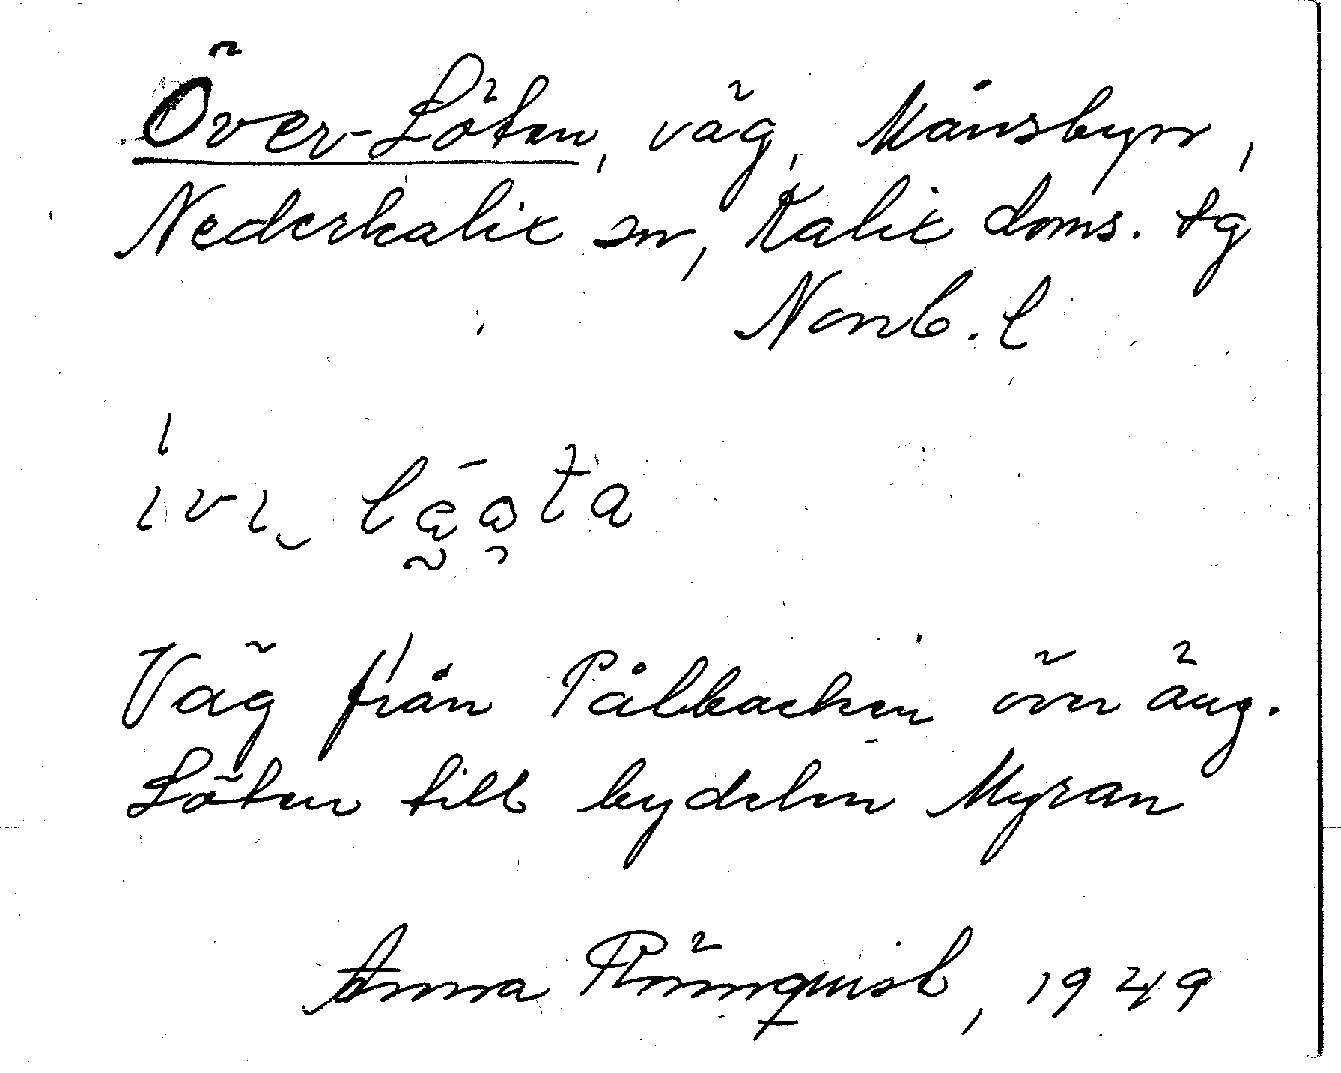 Över-Löten, väg, Månsbyn,
Nederkalix sn, Kalix doms. tg
Norrb. l
ivi lααta
Väg från Pålbacken över äng.
Löten till bydelen Myran
Anna Rönnquist, 1949